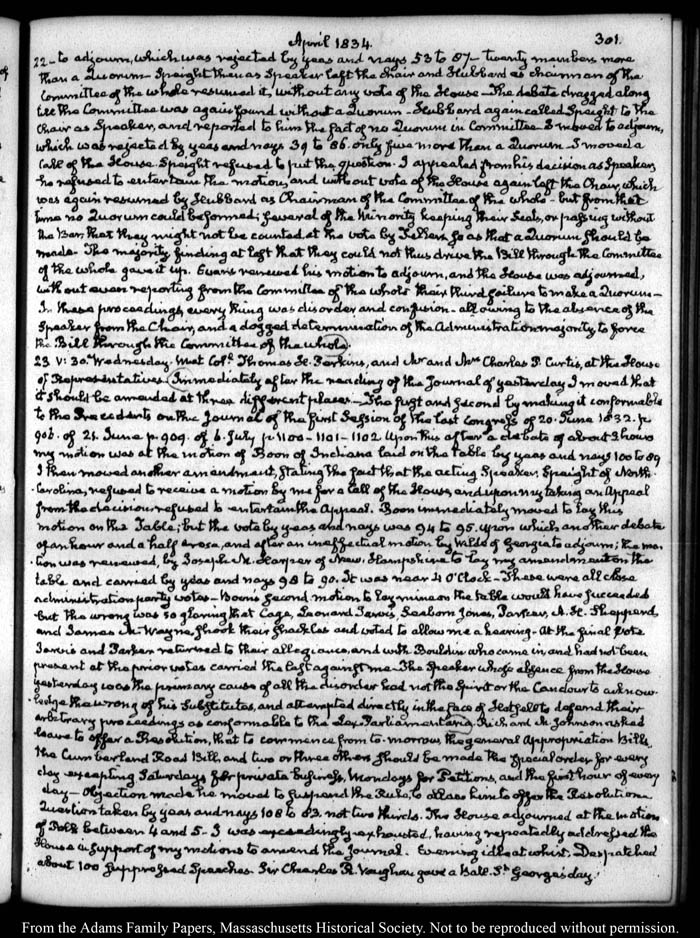 April 1834.
301.
22 - to adjourn, which was rejected by yeas and nays 53 to 87 - twenty members more
than a Quorum - Speight then as Speaker left the Chair and Hubbard as chairman of the
Committee of the whole resumed it, without any vote of the House - The debate dragged along
till the Committee was again found without a Quorum - Hubbard again called Speight to the
Chair as Speaker, and reported to him the fact of no Quorum in Committee I moved to adjourn,
which was rejected by yeas and nays 39 to 86. only five more than a Quorum - I moved a
Call of the House. Speight refused to put the question. I appealed from his decision as Speaker,
he refused to entertain the motion, and without vote of the House again left the Chair, which
was again resumed by Hubbard as Chairman of the Committee of the whole - but from that
time no Quorum could be formed; several of the Minority keeping their Seats, or passing without
the Bar, that they might not be counted, at the vote by Tellers so as that a Quorum should be
made. The majority finding at last that they could not thus drive the Bill through the Committee
of the whole gave it up. Evans renewed his motion to adjourn, and the House was adjourned,
without even reporting from the Committee of the whole their third failure to make a Quorum -
In these proceedings, every thing was disorder and confusion - all owing to the absence of the
Speaker from the Chair, and a dogged determination of the Administration majority to force
the Bill through the Committee of the whole.
23. V: 30. Wednesday. Met Coll. Thomas H. Perkins, and Mr. and Mrs. Charles P. Curtis, at the House
of Representatives. Immediately after the reading of the Journal of yesterday I moved that
it should be amended at three different places - The first and second by making it conformable
to the Precedents on the Journal of the first Session of the last Congress of 20. June 1832. p
906. of 21. June p. 909. of 6. July p. 1100 - 1101 - 1102. Upon this after a debate of about 2 hours
my motion was at the motion of Boon of Indiana laid on the table by yeas and nays 100 to 89
I then moved another amendment, stating the fact that the acting Speaker, Speight of North-
Carolina, refused to receive a motion by me for a Call of the House, and upon my taking an Appeal
from the decision refused to entertain the Appeal. Boon immediately moved to lay this
motion on the Table; but the vote by yeas and nays was 94 to 95. upon which another debate
of an hour and a half arose, and after an ineffectual motion by Wilde of Georgia to adjourn; the mo-
tion was renewed, by Joseph M. Harper of New-Hampshire to lay my amendment on the
table and carried by yeas and nays 98 to 90. It was near 4 O'Clock - These were all close
administration party votes - Boon's second motion to lay mine on the table would have succeeded
but the wrong was so glaring that Cage, Leonard Jarvis, Seaborn Jones, Parker, A. H. Shepperd,
and James M. Wayne, shook their Shackles and voted to allow me a hearing - At the final vote
Jarvis and Parker returned to their allegiance, and with Bouldin who came in and had not been
present at the prior votes carried the last against me - The Speaker whose absence from the House
yesterday was the primary cause of all the disorder had not the Spirit or the Candour to acknow-
ledge the wrong of his Substitutes, and attempted directly in the face of Hatsell to defend their
arbitrary proceedings as conformable to the Lex Parliamentaria. Richard M. Johnson asked
leave to offer a Resolution, that to commence from to-morrow, the general Appropriation Bills,
the Cumberland Road Bill, and two or three others should be made the special order for every
day excepting Saturdays for private business, Mondays for Petitions, and the first hour of every
day - Objection made he moved to suspend the Rule, to allow him to offer the Resolution -
Question taken by yeas and nays 108 to 83. not two thirds. The House adjourned at the motion
of Polk between 4 and 5 - I was exceedingly exhausted, having repeatedly addressed the
House in support of my motions to amend the Journal. Evening idle at whist. Despatched
about 100 Suppressed Speeches. Sir Charles R. Vaughan gave a Ball. St. George's day.
From the Adams Family Papers, Massachusetts Historical Society. Not to be reproduced without permission.